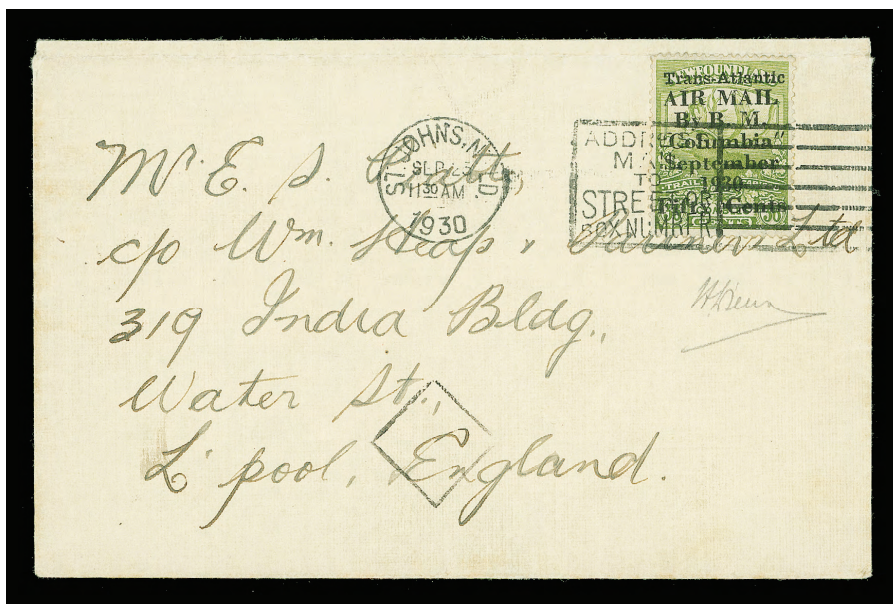 NEWFOUNDLAND
Trans-Atlantic
AIR MAIL
By B. M.
"Columbia"
September
1930
Fifty Cents
ST. JOHN'S, NFLD.
SEP 25
11 30 AM
1930
ADDRESS
MAIL
TO
STREET OR
BOX NUMBER
Mr. E. S.
c/o Wm. Heap & Ltd
319 India Bldg.,
Water St.,
L'pool, England.